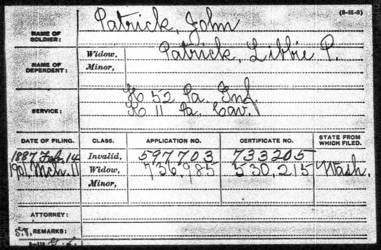 (3-III-3)
NAME OF SOLDIER: Patrick, John
NAME OF DEPENDENT: Widow, Patrick, Libbie P.
Minor,
SERVICE: K 52 Pa. Inf.
K 11 Pa. Cav.
DATE OF FILING. CLASS. APPLICATION NO. CERTIFICATE NO. STATE FROM WHICH FILED.
1887 Feb. 14 Invalid, 597703 733205
1901 Mch. 11 Widow, 736,985 530,215 Wash.
Minor,
ATTORNEY:
REMARKS: